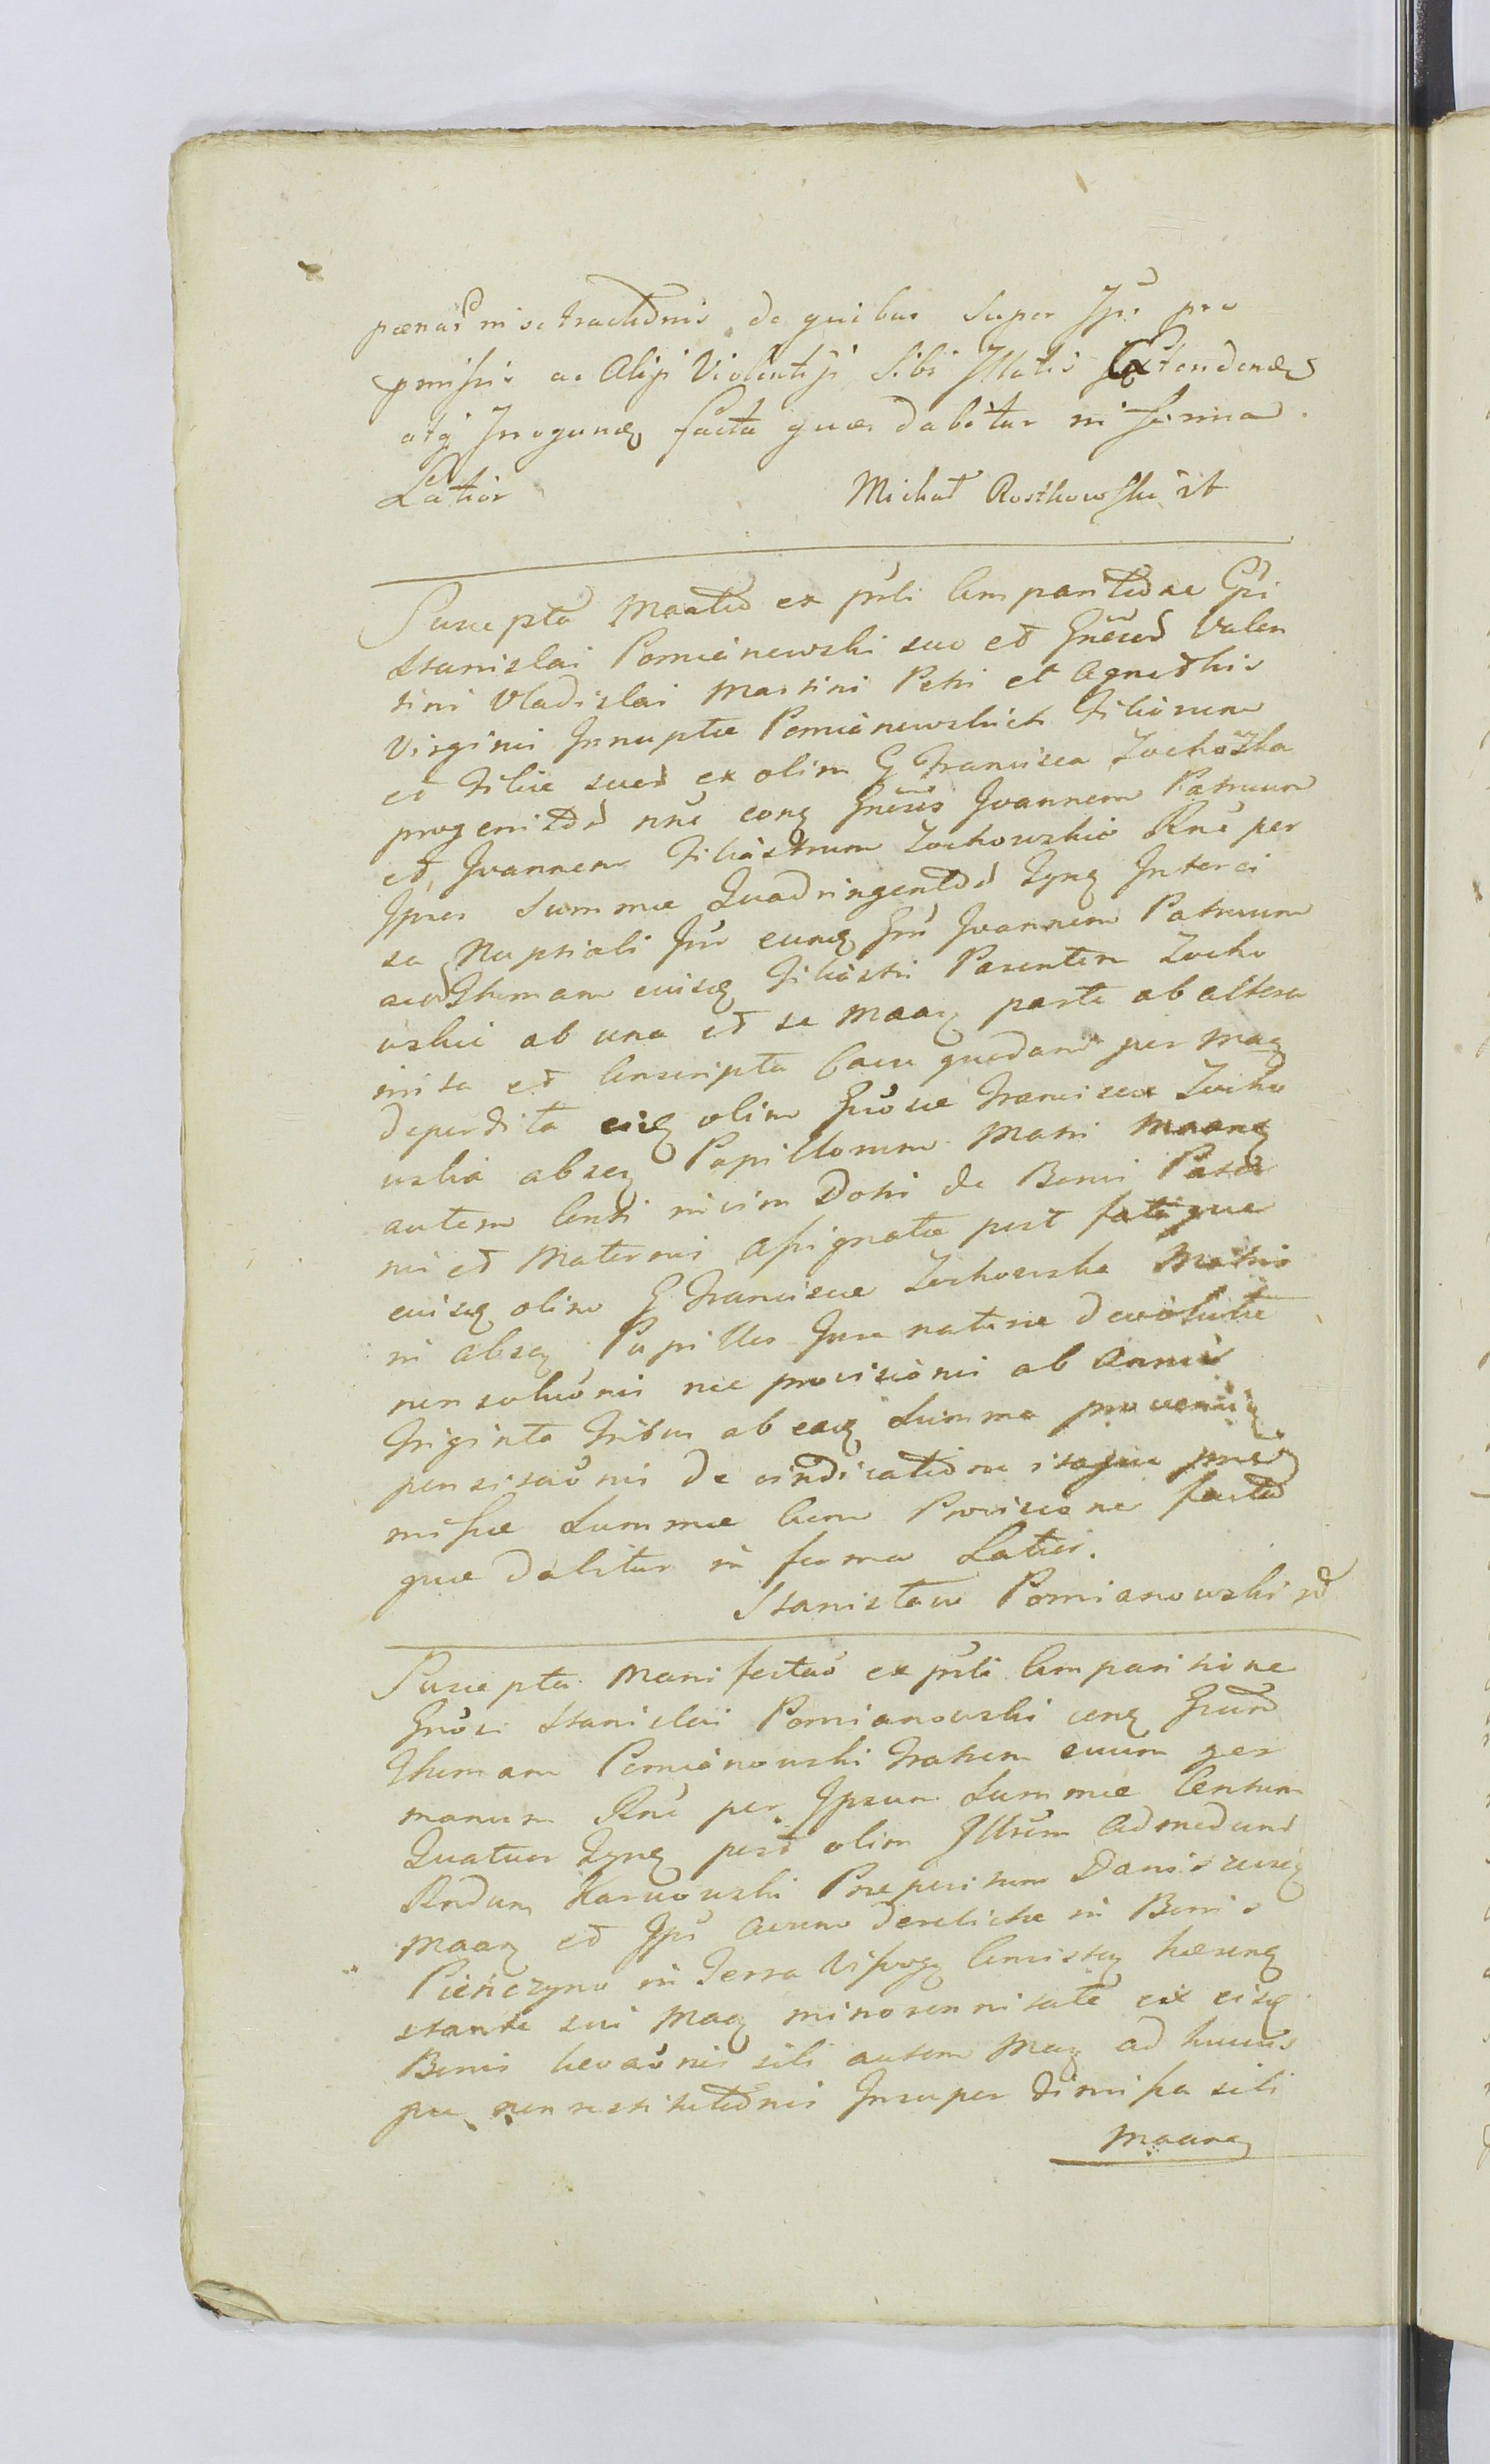 pænas in se tractionis de quibus super Ipso pro
pmissis ac Alijs Violentijs Sibi Illatis Extendend
atq Irrogand facta quæ dabitur in forma
Latiori Michał Rostkowski st
Suscepta Maatio ex pnli Comparitione Gsi
Stanislai Pomianowski suo et Gnesor Valen
tini Vladislai Martini Petri et Agnethis
Virginis Innuptæ Pomianowskich Filiorum
et Filiæ suor ex olim G Francisca Zochoska
progenitor nne conq Gneses Joannem Patruum
et Joannem Filiastrum Zochowskie Rne per
Ipsos Summæ Quadringentor Zynq Interci
sa Nuptiali Inr eunq Gsu Joannem Patruum
ac Thomam euisq Filiastri Parentem Zocho
wskie ab una et se Maaq parte ab altera
inita et Conscripta casu quodam per Maq
deperdita eisq olim Gnosæ Franciscæ Zocho
wska absq Pupillorum Matri Maanq
autem Consti in vim Dotis de Bonis Pater
nis et Maternis Assignatæ post fata que
euisq olim G Franciscæ Zochowska Matris
in absq Pupillos Jure naturæ devolutæ
non solutionis nec provisionis ab Annis
Triginta Tribus ab eaq Summa provenieq
pensitationis de vindicatione itaque præ
missæ Summæ cum Provisione facta
quæ dabitur in forma Latiori.
Stanisław Pomianowski st
Suscepta Manifestao ex pnli Comparitione
Gnosi Stanislai Pomianowski conq Gsum
Thomam Pomianowski Fratrem suum ger
manum Rne per Ipsum Summæ Centum
Quatuor Zynq post olim Illrem Admodum
Rndum Karwowski Præpositum
Maaq et Ipsi Avum derelictæ in Bonis
Pieńczyno in Terra Consistq hæreng
stante sui Maq minorennitate ex eisq
Bonis levaonis sibi autem Maq ad hucus
que non restitutionis Insuper dimissa sibi
Maanq